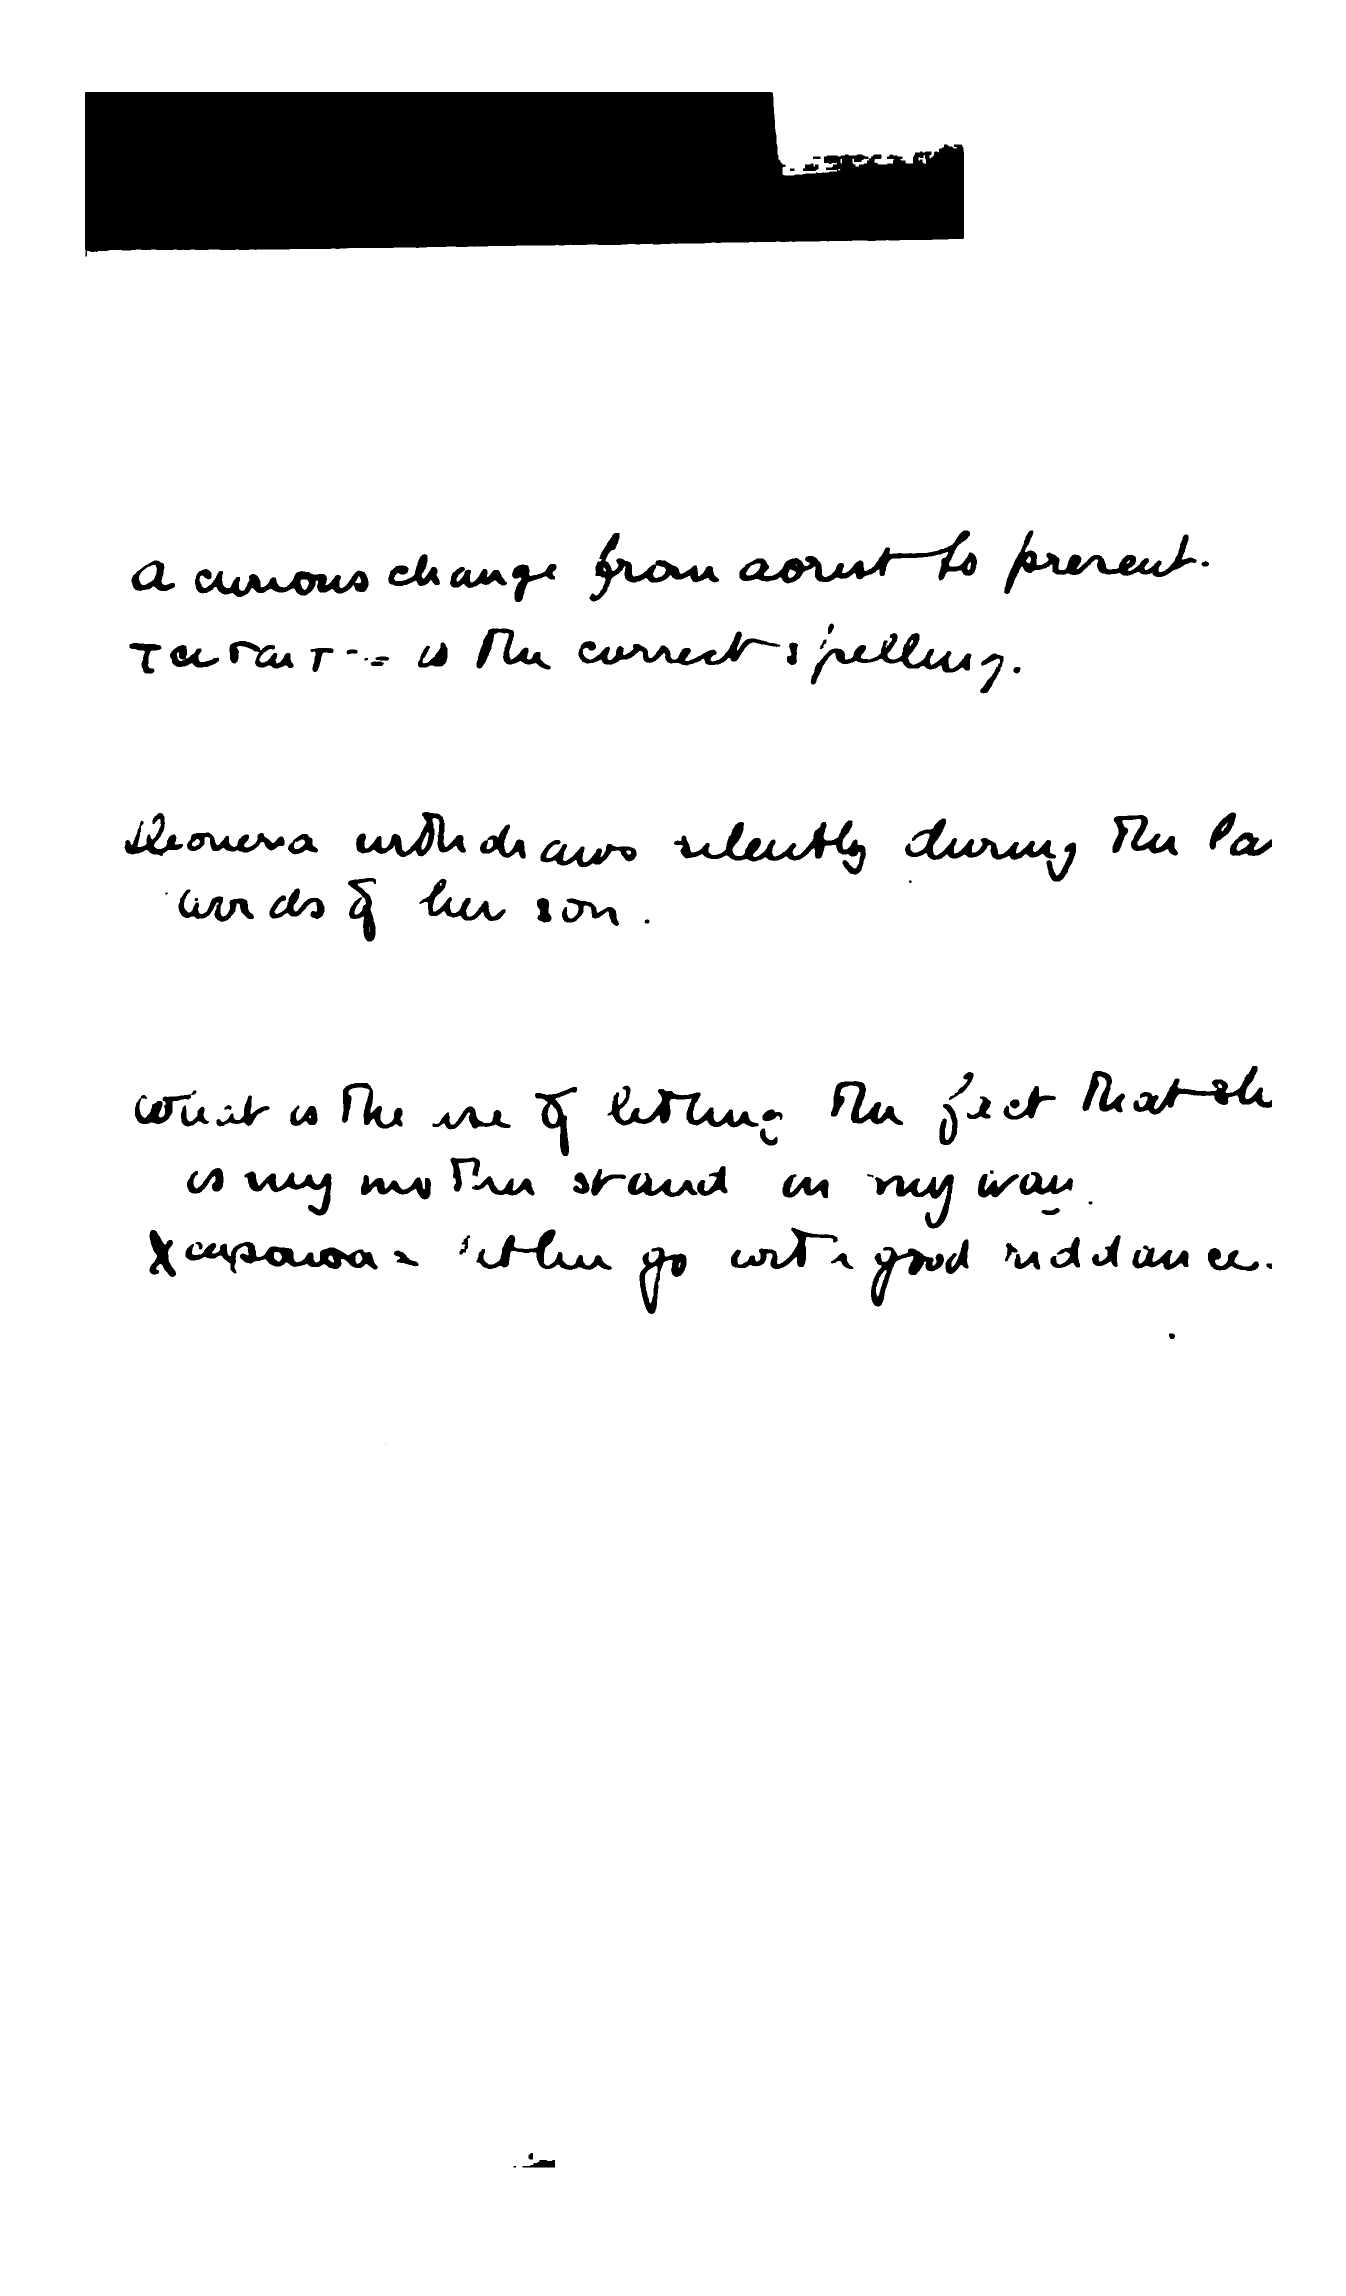 a curious change from aorist to present.
is the correct spelling.
withdraws silently during the la
words of her son.
What is the use of letting the fact that sh
is my mother stand in my way.
χαιρουσα = let her go with good riddance.